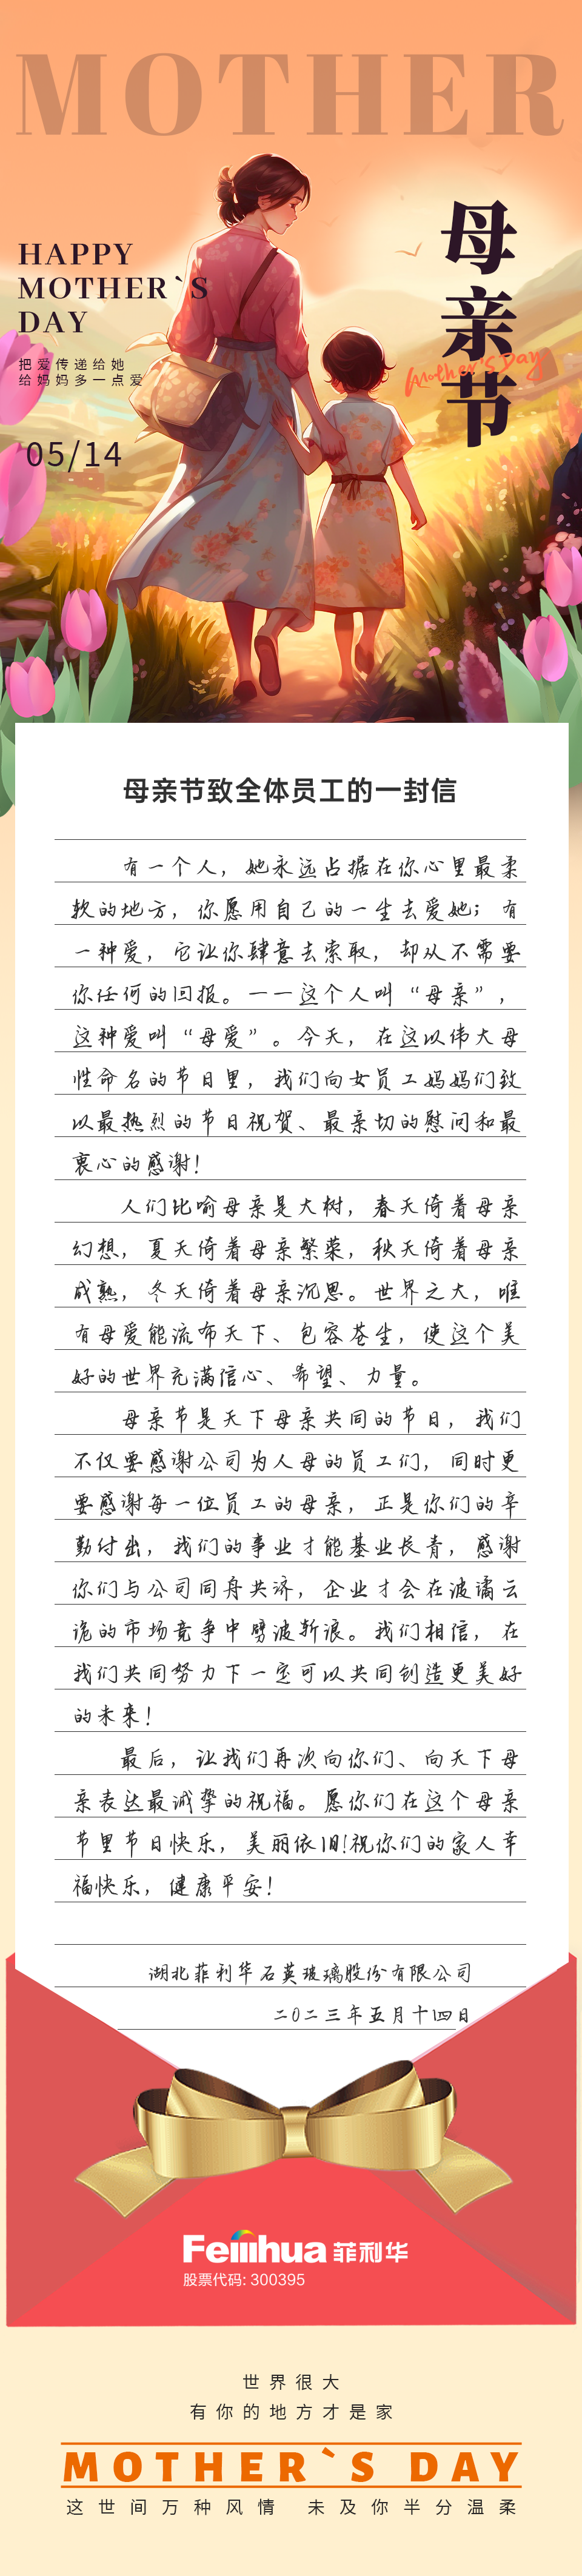 MOTHER
HAPPY
MOTHER`S
DAY
把爱传递给她
给妈妈多一点爱
05/14
母亲节
Mother's Day
母亲节致全体员工的一封信
有一个人，她永远占据在你心里最柔
软的地方，你愿用自己的一生去爱她；有
一种爱，它让你肆意去索取，却从不需要
你任何的回报。一一这个人叫“母亲”，
这种爱叫“母爱”。今天，在这以伟大母
性命名的节日里，我们向女员工妈妈们致
以最热烈的节日祝贺、最亲切的慰问和最
衷心的感谢！
人们比喻母亲是大树，春天倚着母亲
幻想，夏天倚着母亲繁荣，秋天倚着母亲
成熟，冬天倚着母亲沉思。世界之大，唯
有母爱能流布天下、包容苍生，使这个美
好的世界充满信心、希望、力量。
母亲节是天下母亲共同的节日，我们
不仅要感谢公司为人母的员工们，同时更
要感谢每一位员工的母亲，正是你们的辛
勤付出，我们的事业才能基业长青，感谢
你们与公司同舟共济，企业才会在波谲云
诡的市场竞争中劈波斩浪。我们相信，在
我们共同努力下一定可以共同创造更美好
的未来！
最后，让我们再次向你们、向天下母
亲表达最诚挚的祝福。愿你们在这个母亲
节里节日快乐，美丽依旧!祝你们的家人幸
福快乐，健康平安！
湖北菲利华石英玻璃股份有限公司
二0二三年五月十四日
Feilihua 菲利华
股票代码: 300395
世界很大
有你的地方才是家
MOTHER`S DAY
这世间万种风情 未及你半分温柔